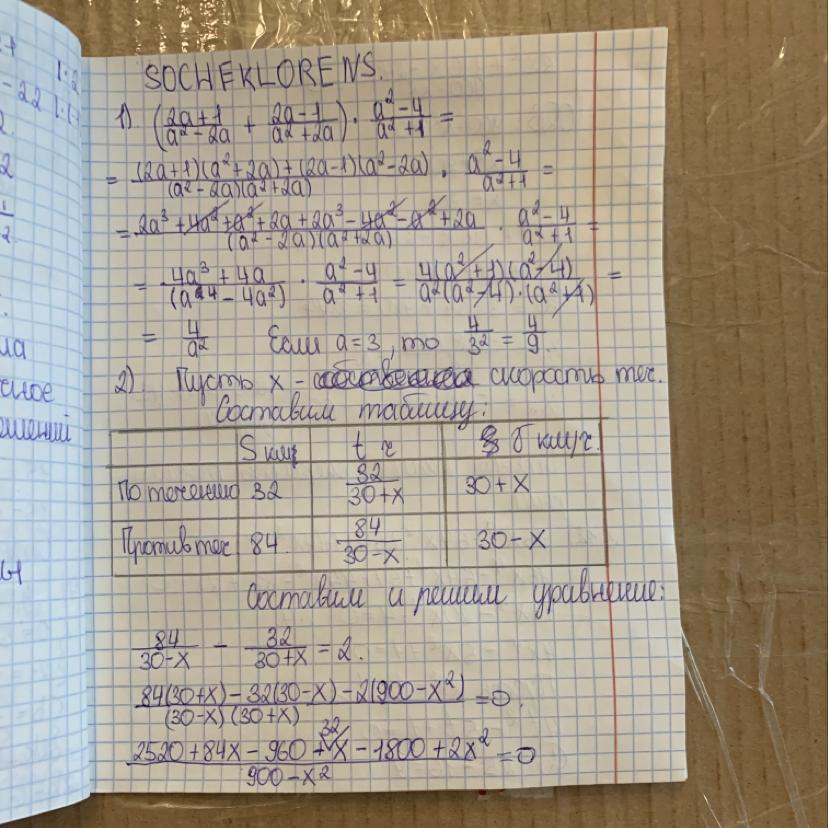 SOCHEKLORENS.
1) ((2a+1)/(a²-2a) + (2a-1)/(a²+2a)) · (a²-4)/(a²+1) =
= ((2a+1)(a²+2a)+(2a-1)(a²-2a))/((a²-2a)(a²+2a)) · (a²-4)/(a²+1) =
= (2a³+4a²+a²+2a+2a³-4a²-a²+2a)/((a²-2a)(a²+2a)) · (a²-4)/(a²+1) =
= (4a³+4a)/(a⁴-4a²) · (a²-4)/(a²+1) = (4(a²+1)(a²-4))/(a²(a²-4)·(a²+1)) =
= 4/a² Если a=3, то 4/3² = 4/9.
2) Пусть x - скорость теч.
Составим таблицу:
S км t ч км/ч.
По течению 32 32/(30+x) 30+x
Против теч 84. 84/(30-x) 30-x
Составим и решим уравнение:
84/(30-x) - 32/(30+x) = 2.
(84(30+x)-32(30-x)-2(900-x²))/((30-x)(30+x)) = 0.
(2520+84x-960+32x-1800+2x²)/(900-x²) = 0